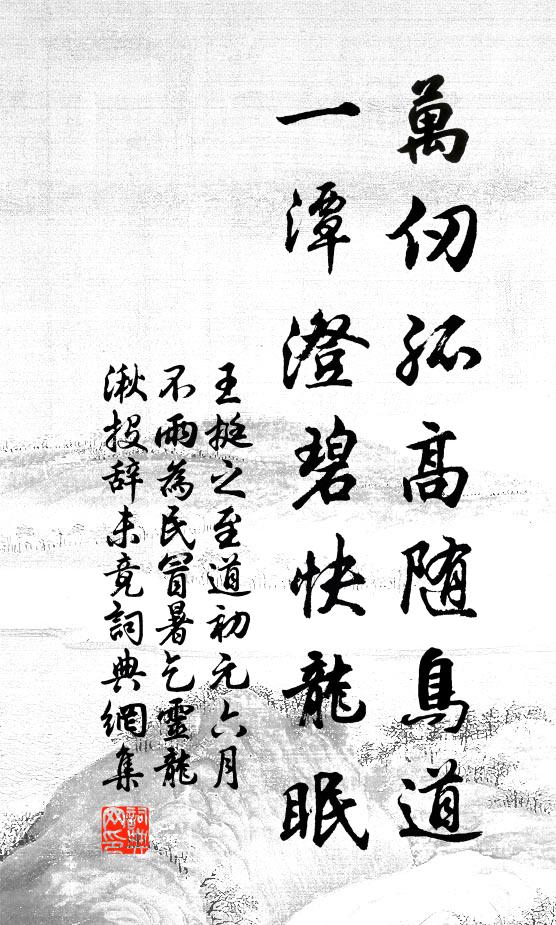 萬仞孤高随鳥道
一潭澄碧快龍眠
王挺之至道初元六月
不雨為民冒暑乞靈龍
湫投辞未竟詞典網集
詞典网印